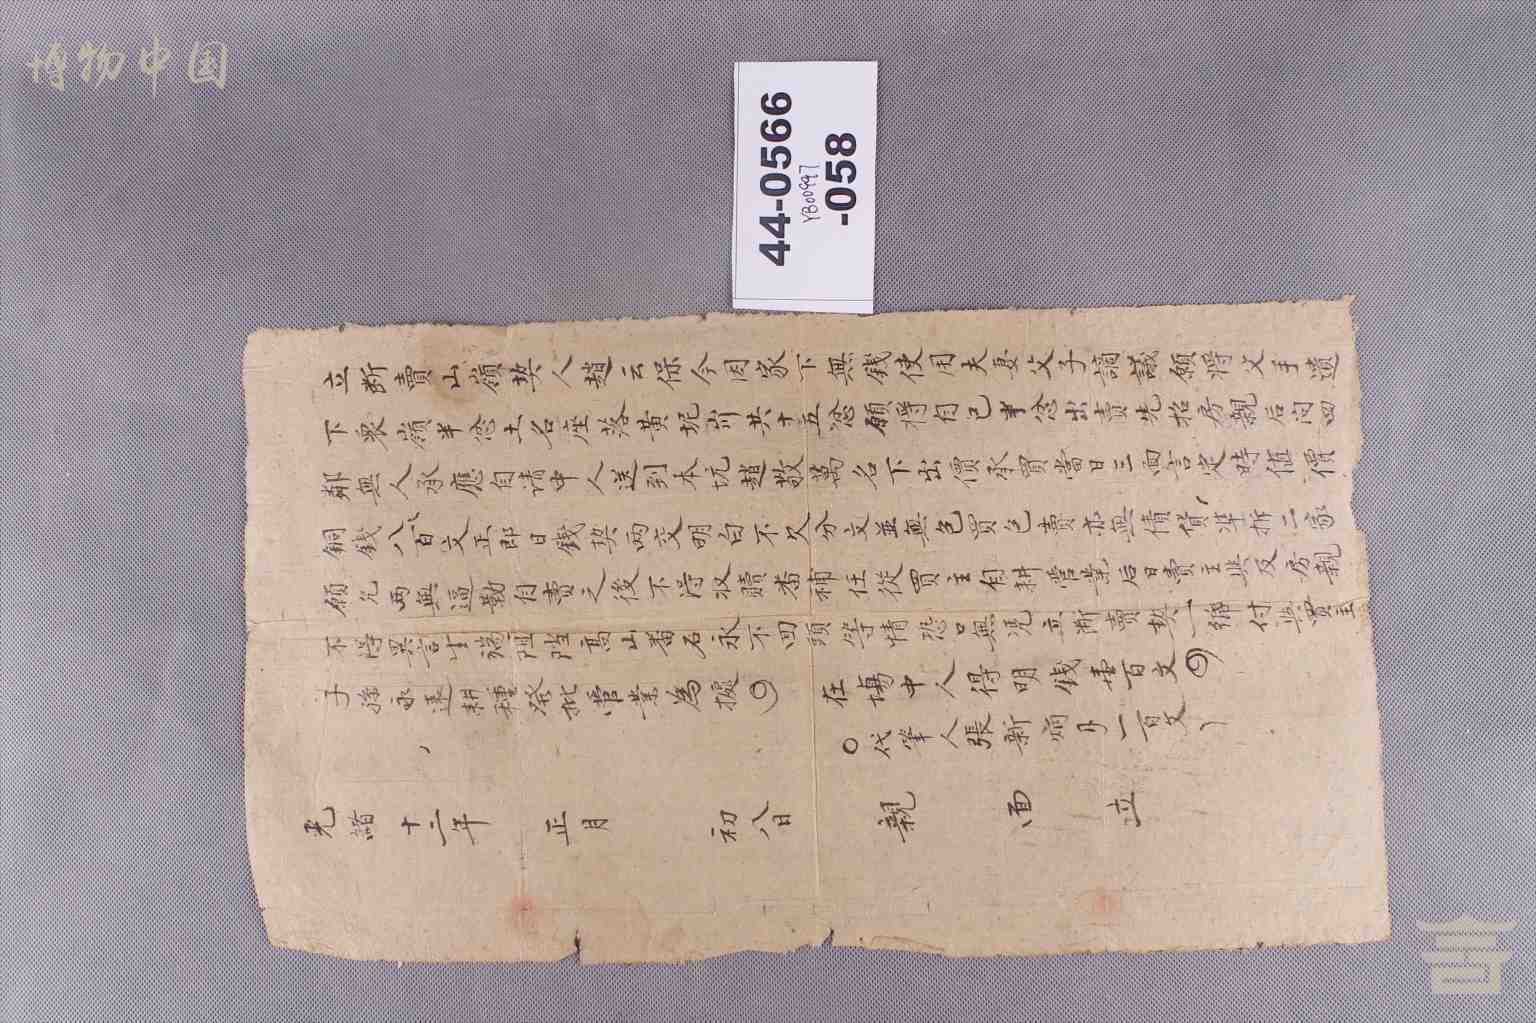 博物中国
44-0566
YB00997
-058
立断賣山嶺契人趙云保今因家下無錢使用夫妻父子謫議願將父手遺
下衆嶺半忩土名座落黄坭圳共十五忩願將自己半忩出賣先招房親后问四
鄰無人承應自请中人送到本坑趙敬萬名下出價承買當日三面言定時值價
銅錢八百文正即日錢契兩交明白不欠分文並無包買包賣亦無債貨準折二家
願允兩無逼勒自賣之後不得收贖番補任從買主自耕营業后日賣主与及房親
不得異言生端阻挡高山番石永不回頭等情恐口無凭立断賣契一纸付与買主
子孫永遠耕種發批营業為據
在塲中人得明錢壹百文
代筆人張新 月一百文
光緒十二年 正月 初八日 親 面 立